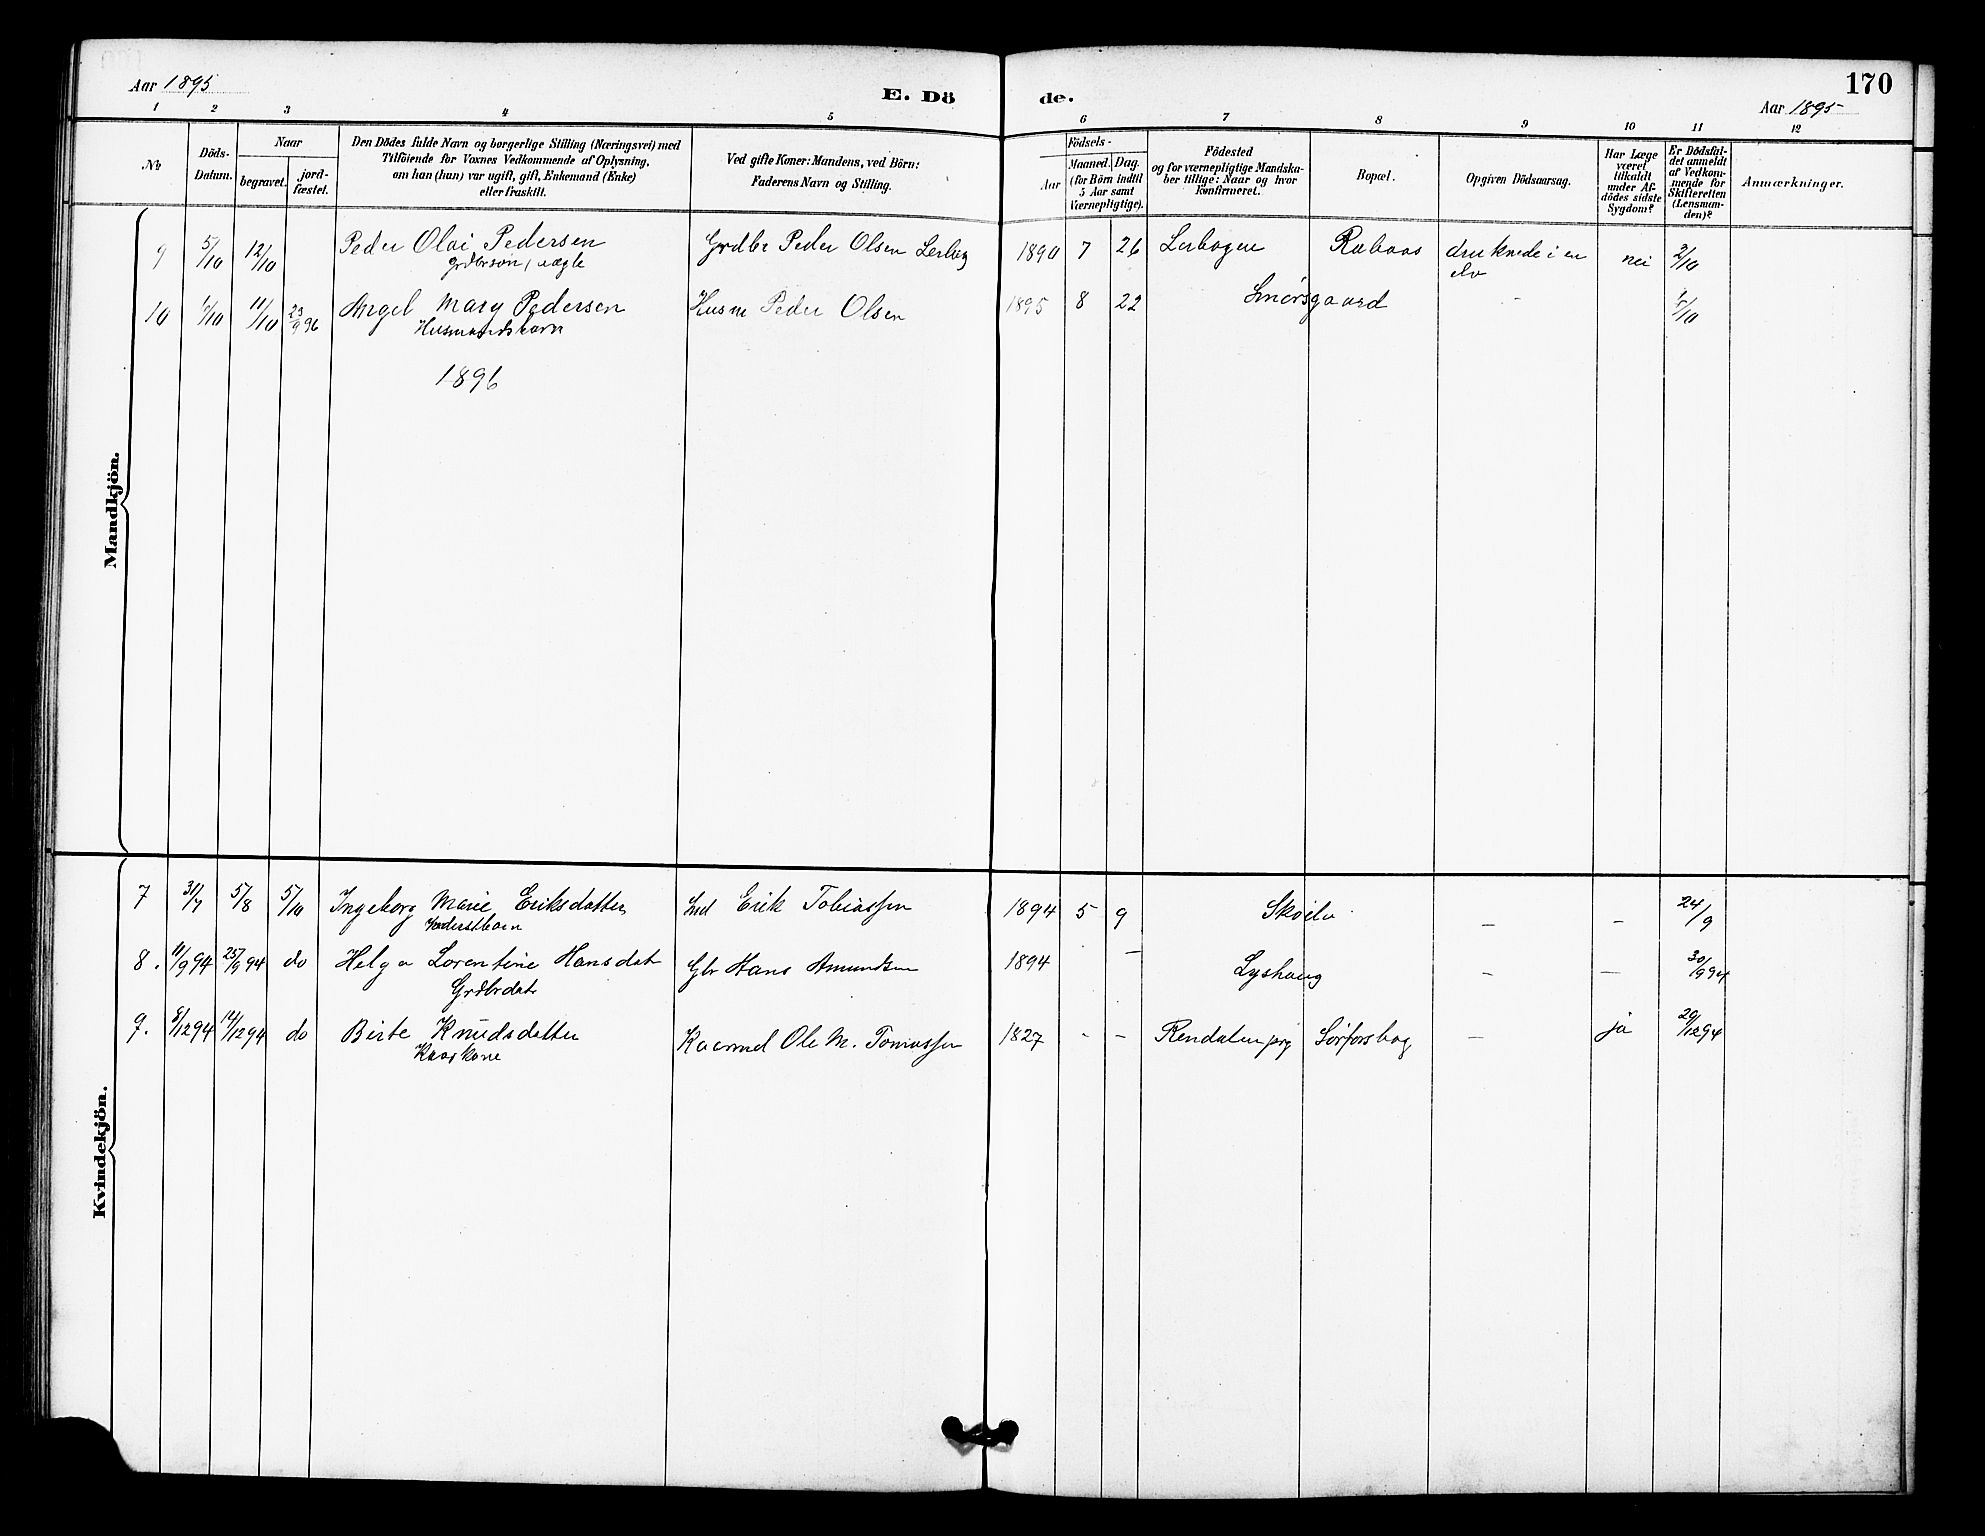 Aar 1895
E. Dö
de.
170
Aar 1895
1 2 3 4 5 6 7 8 9 10 11 12
No
Döds-
Datum.
Naar
begravet.
jord-
fæstet.
Den Dödes fulde Navn og borgerlige Stilling (Næringsvei) med
Tilföiende for Voxnes Vedkommende af Oplysning,
om han (hun) var ugift, gift, Enkemand (Enke)
eller fraskilt.
Ved gifte Koner: Mandens, ved Börn:
Faderens Navn og Stilling.
Födsels-
Aar
Maaned. Dag.
(for Börn indtil
5 Aar samt
Værnepligtige).
Födested
og for værnepligtige Mandska-
ber tillige: Naar og hvor
Konfirmeret.
Bopæl.
Opgiven Dödsaarsag.
Har Læge
været
tilkaldt
under Af-
dödes sidste
Sygdom?
Er Dödsfal-
det anmeldt
af Vedkom-
mende for
Skifteretten
(Lensman-
den)?
Anmærkninger.
Mandkjön.
9 5/10 12/10 Peder Olai Pedersen Grdbr Peder Olsen 1890 7 26 druknede i en nei 2/10
elv
10 11/10 23/9 96 Angel Mary Pedersen Husm Peder Olsen 1895 8 22 Smørsgaard -
Husmandsbarn
1896
Kvindekjön.
7 31/7 5/8 5/10 Ingeborg Marie Eriksdatter Ind Erik Tobiassen 1894 5 9 – – 24/9
Inderstbarn
8. 11/9 94 25/9 94 do Helga Lorentine Hansdat Gbr Hans Amundsen 1894 – Lyshaug – – 30/9 94
Grdbrdatr
9. 8/12 94 14/12 94 do Birte Knudsdatter Kaarmd Ole M. Tomassen 1827 - – Rendalen prg Sørforshog – ja 20/12 94
Kaarkone